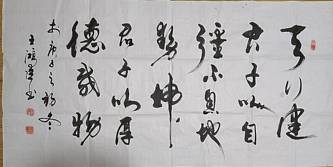 天行健
君子以自
强不息地
势坤
君子以厚
德载物